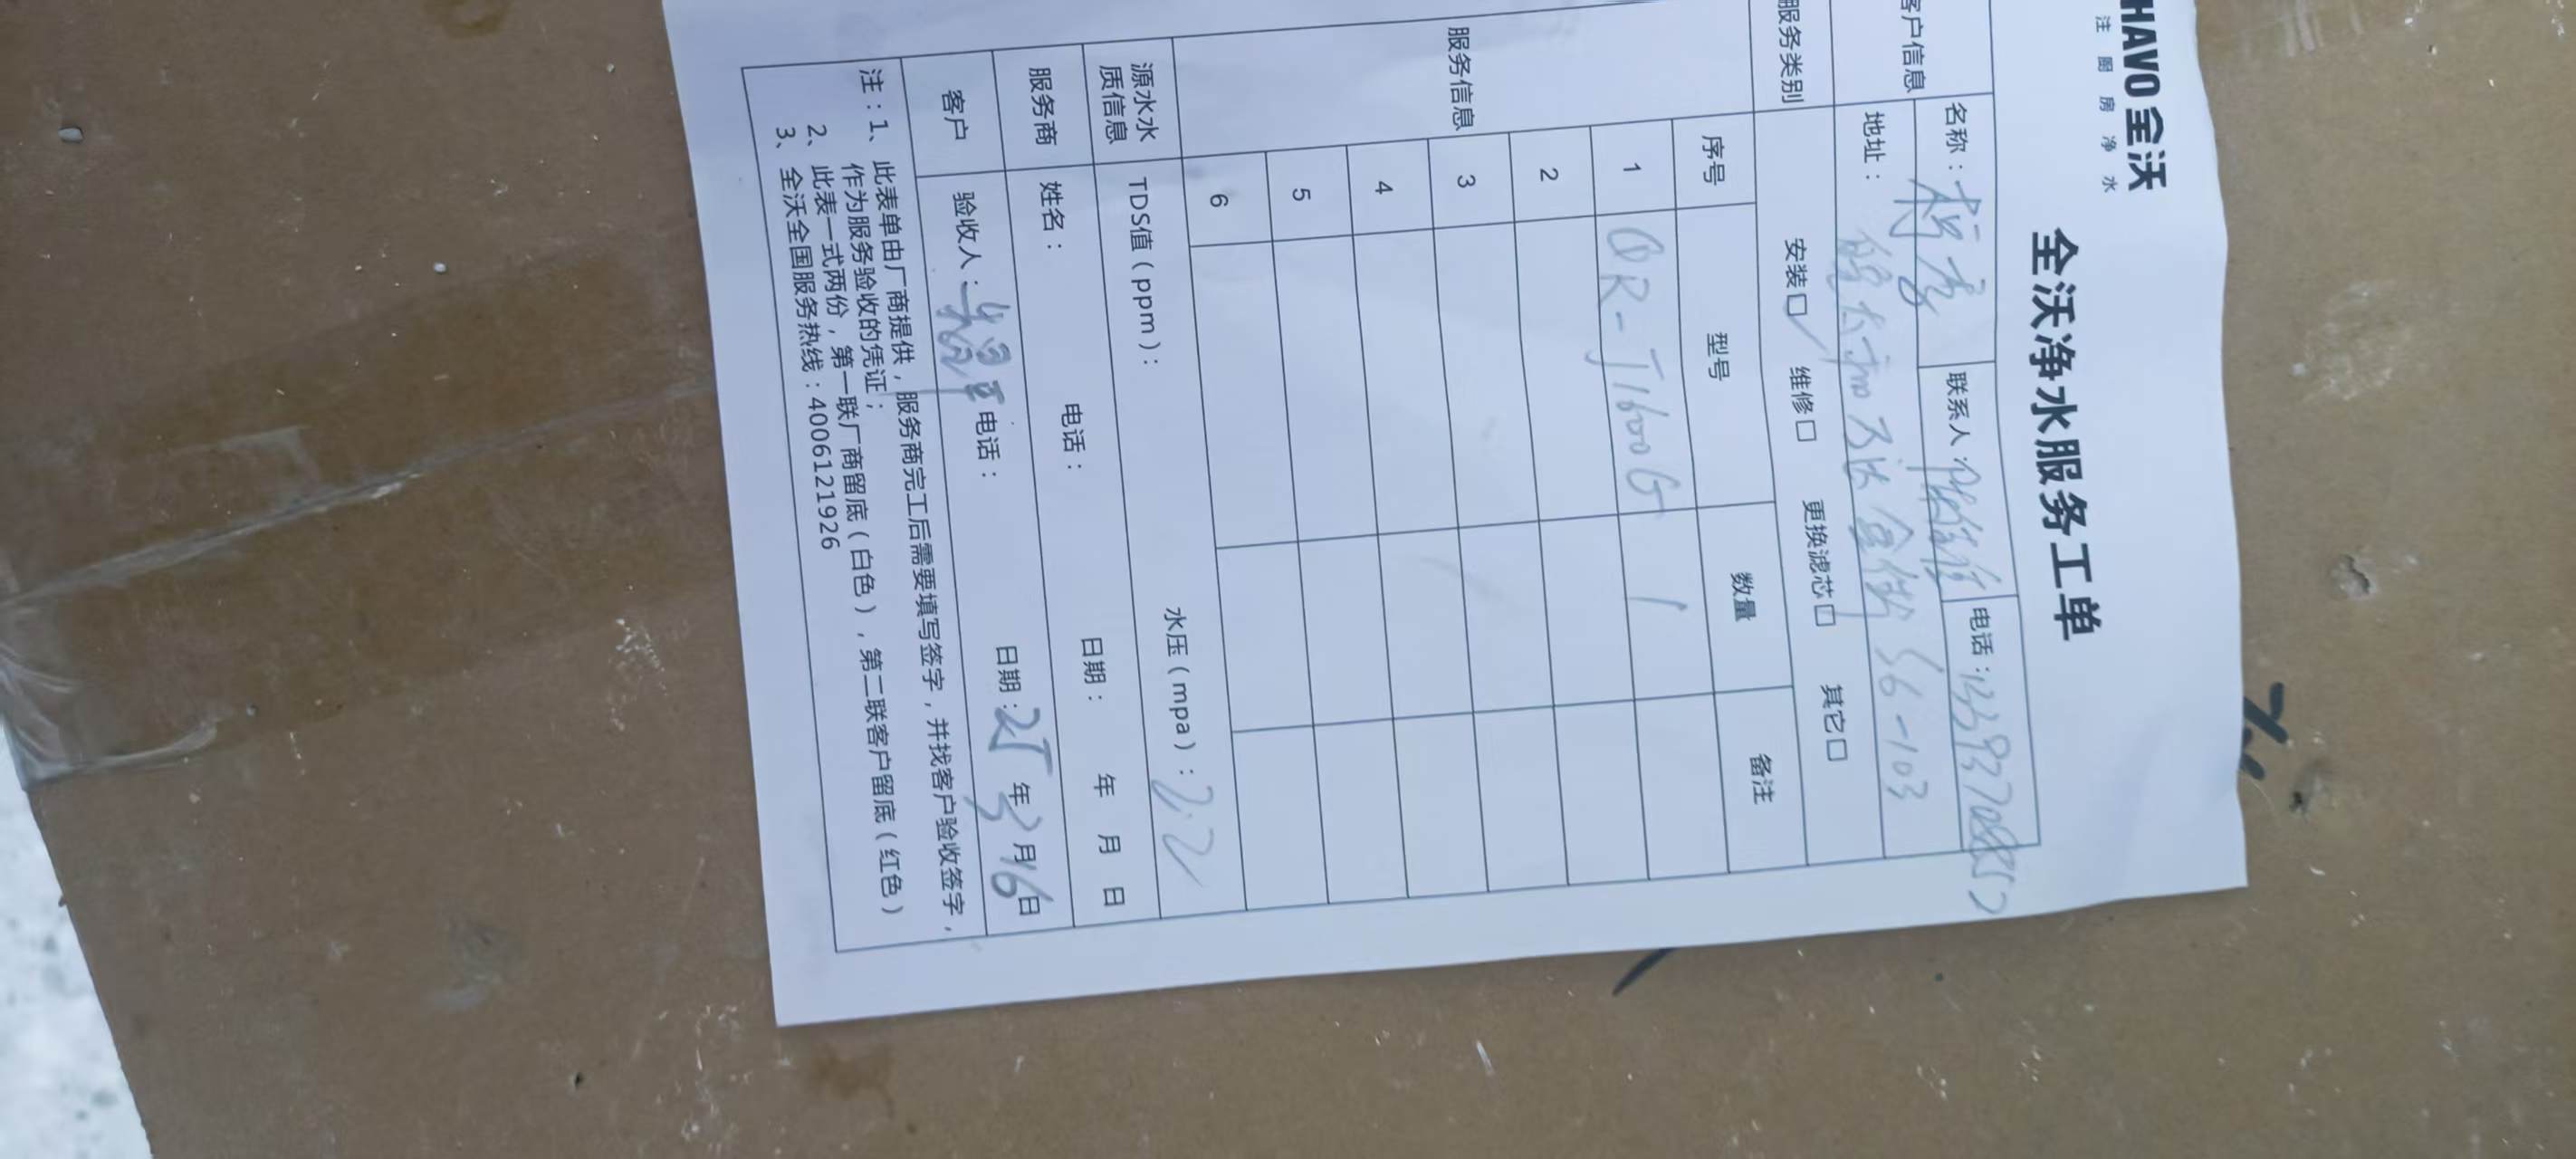 HAVO全沃
注 厨 房 净 水
全沃净水服务工单
客户信息 名称： 联系人： 电话：
地址： 万达金街 S6-103
服务类别 安装□✓ 维修□ 更换滤芯□ 其它□
服务信息 序号 型号 数量 备注
1 QR-J1600G 1
2
3
4
5
6
源水水质信息 TDS值（ppm）： 水压（mpa）：2.2
服务商 姓名： 电话： 日期： 年 月 日
客户 验收人： 电话： 日期：25年3月16日
注：1、此表单由厂商提供，服务商完工后需要填写签字，并找客户验收签字，
作为服务验收的凭证；
2、此表一式两份，第一联厂商留底（白色），第二联客户留底（红色）
3、全沃全国服务热线：4006121926